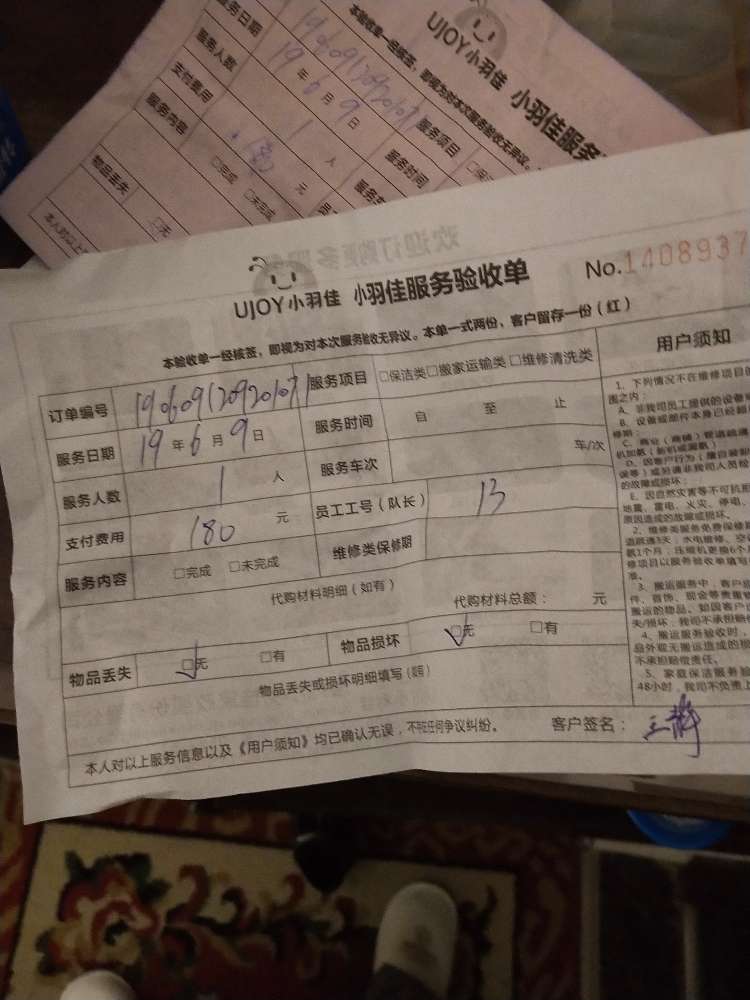 UJOY小羽佳 小羽佳服务
本验收单一经核签，即视为对本次服务验收无异议。
服务日期 19年6月9日 服务项目
服务人数 1 人 服务时间
支付费用 元
服务内容 □完成 □未完成
物品丢失 □无
本人对以上
欢迎订购更多服
UJOY小羽佳 小羽佳服务验收单 No.1408937
本验收单一经核签，即视为对本次服务验收无异议。本单一式两份，客户留存一份（红）
订单编号 190609120920107 服务项目 □保洁类□搬家运输类□维修清洗类
服务日期 19年6月9日 服务时间 自 至 止
服务人数 1 人 服务车次 车/次
支付费用 180 元 员工工号（队长） 13
服务内容 □完成 □未完成 维修类保修期
代购材料明细（如有）
代购材料总额： 元
物品丢失 ☑无 □有 物品损坏 ☑无 □有
物品丢失或损坏明细填写（如有）
本人对以上服务信息以及《用户须知》均已确认无误，不存在任何争议纠纷。 客户签名：
用户须知
1、下列情况不在维修项目的
围之内：
A、非我司员工提供的设备
B、设备或部件本身已经超
修期；
C、商业（商铺）管道疏通
机加氨（新机或漏氨）
D、因客户行为（擅自装卸
误等）或另请非我司人员
的故障或损坏；
E、因自然灾害等不可抗
地震、雷电、火灾、停电、
原因造成的故障或损坏。
2、维修类服务免费保修
道疏通3天；水电维修、空
氨1个月；压缩机更换6个
修项目以服务验收单填写
准。
3、搬运服务中，客户
件、首饰、现金等贵重
搬运的物品。如因客户
失/损坏，我司不承担
4、搬运服务验收时，
品外观无搬运造成的损
不承担赔偿责任。
5、家庭保洁服务验
48小时，我司不负责